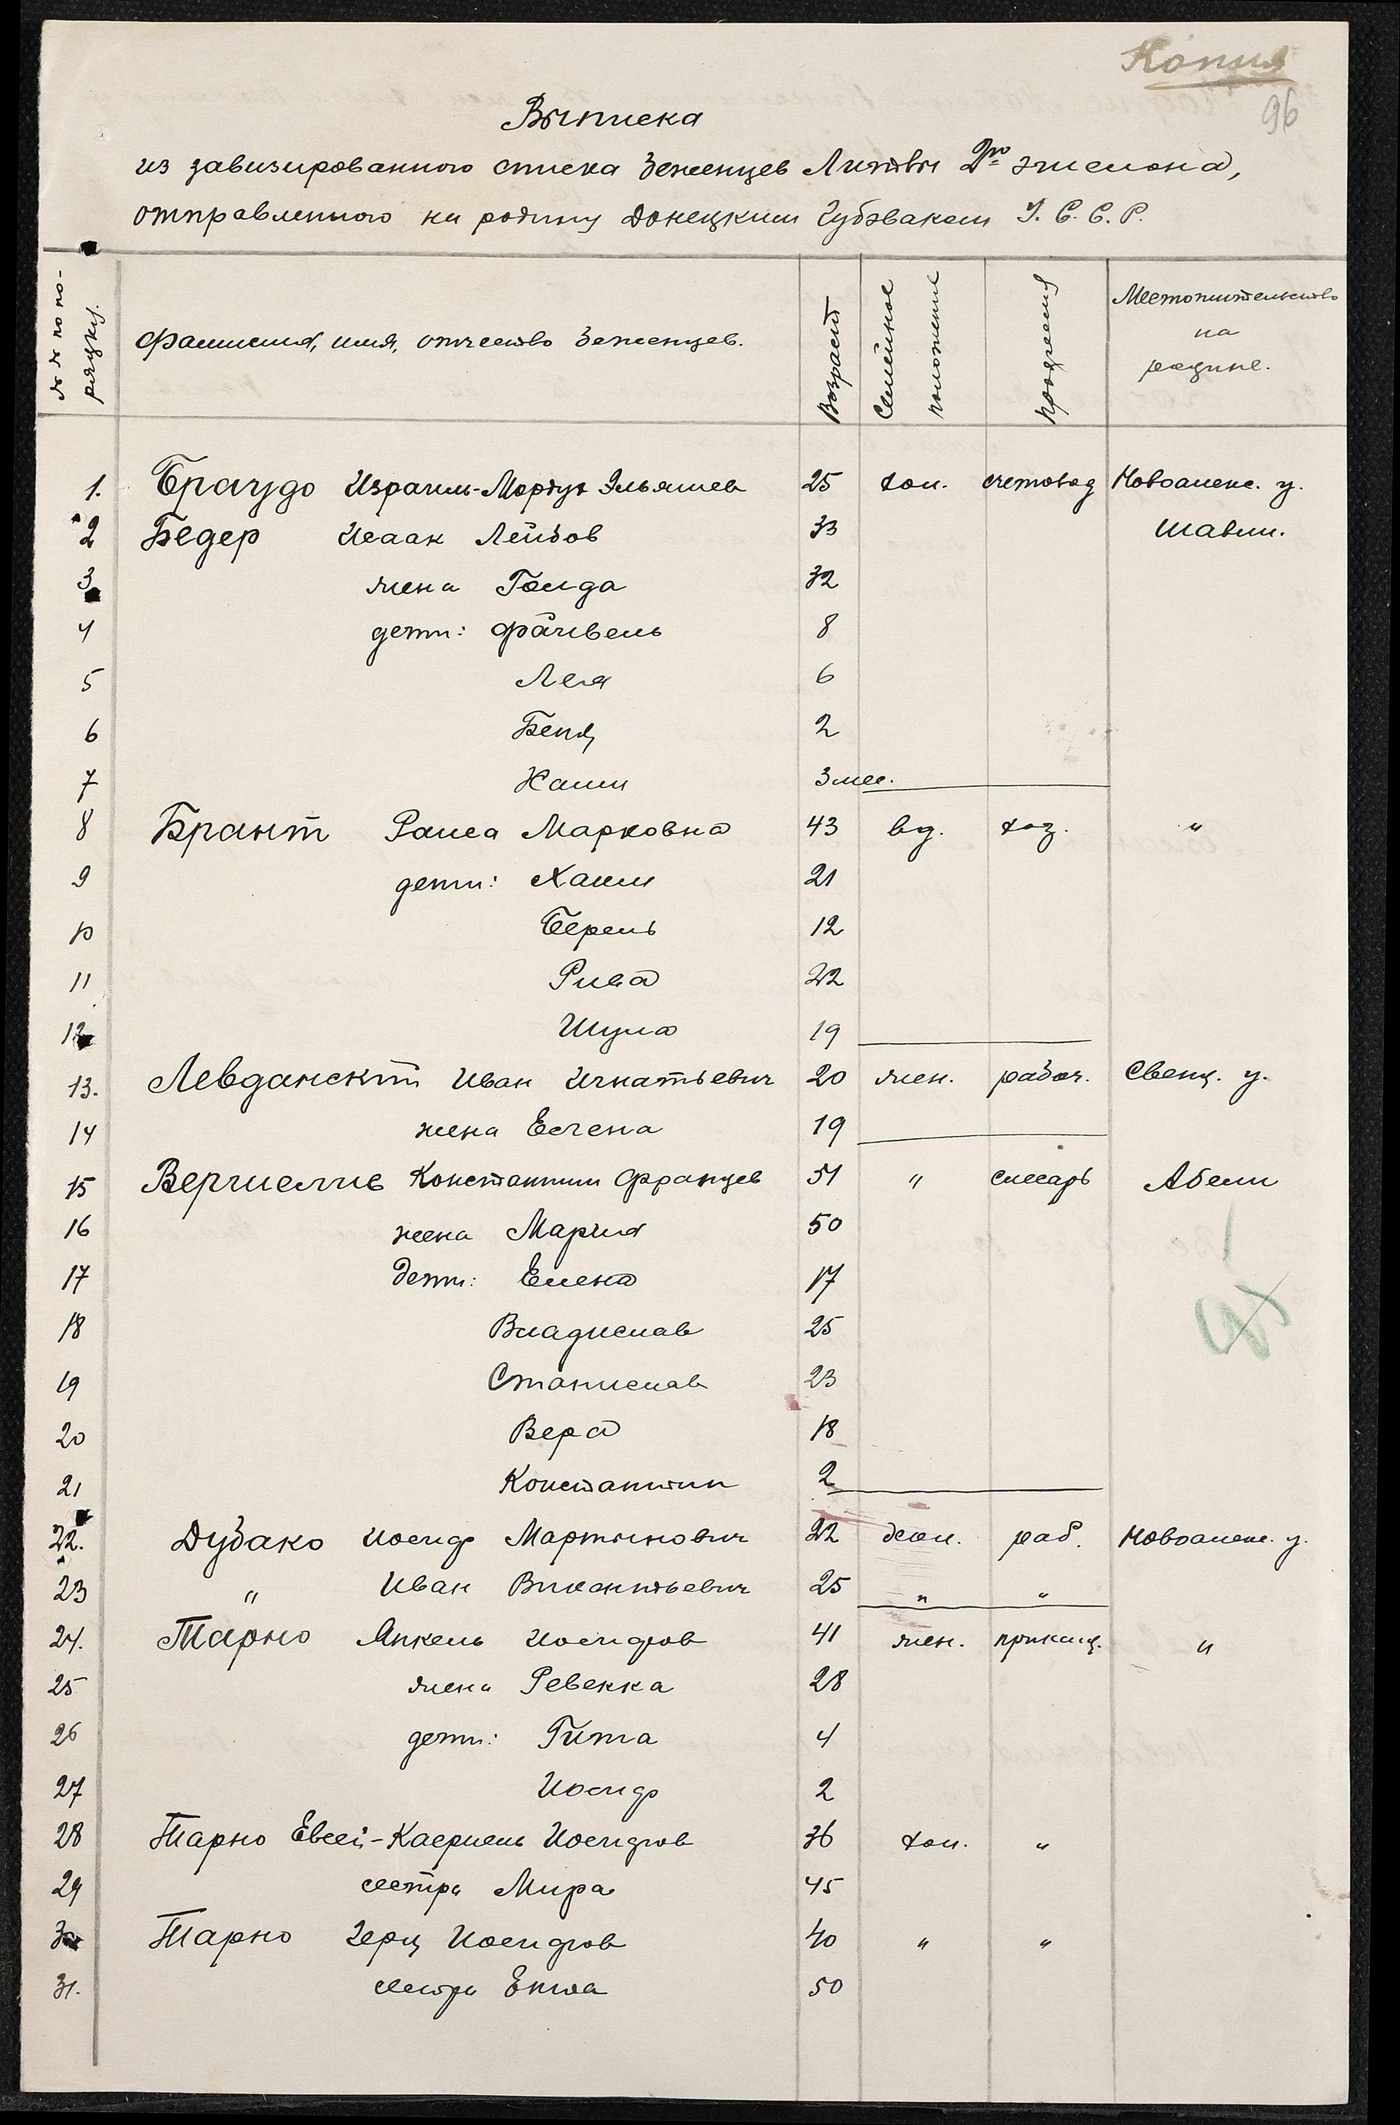 Копия
96
Выписка
из завизированного списка беженцев Литвы 2го эшелона,
отправленного на родину Донецким Губэваком У. С. С. Р.
№ № по по-рядку. Фамилия, имя, отчество беженцев. Возраст Семейное положение профессия Местожительство на родине.
1. Браудо Израиль-Мордух Эльяшев 25 хол. счетовод Новоалекс. у.
2 Бедер Исаак Лейбов 33 Шавли.
3 жена Голда 32
4 дети: Файвель 8
5 Лея 6
6 Бенц 2
7 Хаим 3 мес.
8 Брант Раиса Марковна 43 вд. хоз. "
9 дети: Хаим 21
10 Берель 12
11 Рива 22
12 Шула 19
13. Левданский Иван Игнатьевич 20 жен. рабоч. Свенц. у.
14 жена Елена 19
15 Константин Францев 51 " слесарь Абели
16 жена Мария 50
17 дети: Елена 17
18 Владислав 25
19 Станислав 23
20 Вера 18
21 Константин 2
22. Дубако Иосиф Мартинович 22 хол. раб. Новоалекс. у.
23 " Иван Викентьевич 25 " "
24. Тарно Янкель Иосифов 41 жен. приказч. "
25 жена Ревекка 28
26 дети: Гита 4
27 Иосиф 2
28 Тарно Евсей- Иосифов 36 хол. "
29 сестра Мира 45
30 Тарно Герц Иосифов 40 " "
31. сестра Ента 50